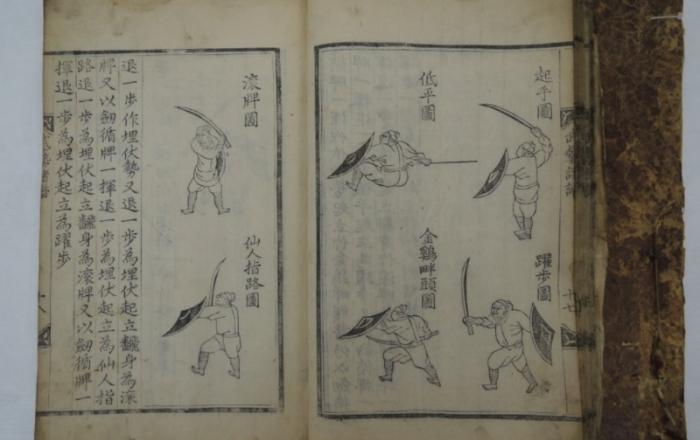 武藝諸譜
十七
起手圖
躍步圖
低平圖
金鷄畔頭圖
滚牌圖
仙人指路圖
退一步作埋伏勢又退一步為埋伏起立飜身為滚
牌又以劒循牌一揮退一步為埋伏起立為仙人指
路退一步為埋伏起立飜身為滚牌又以劒循牌一
揮退一步為埋伏起立為躍步